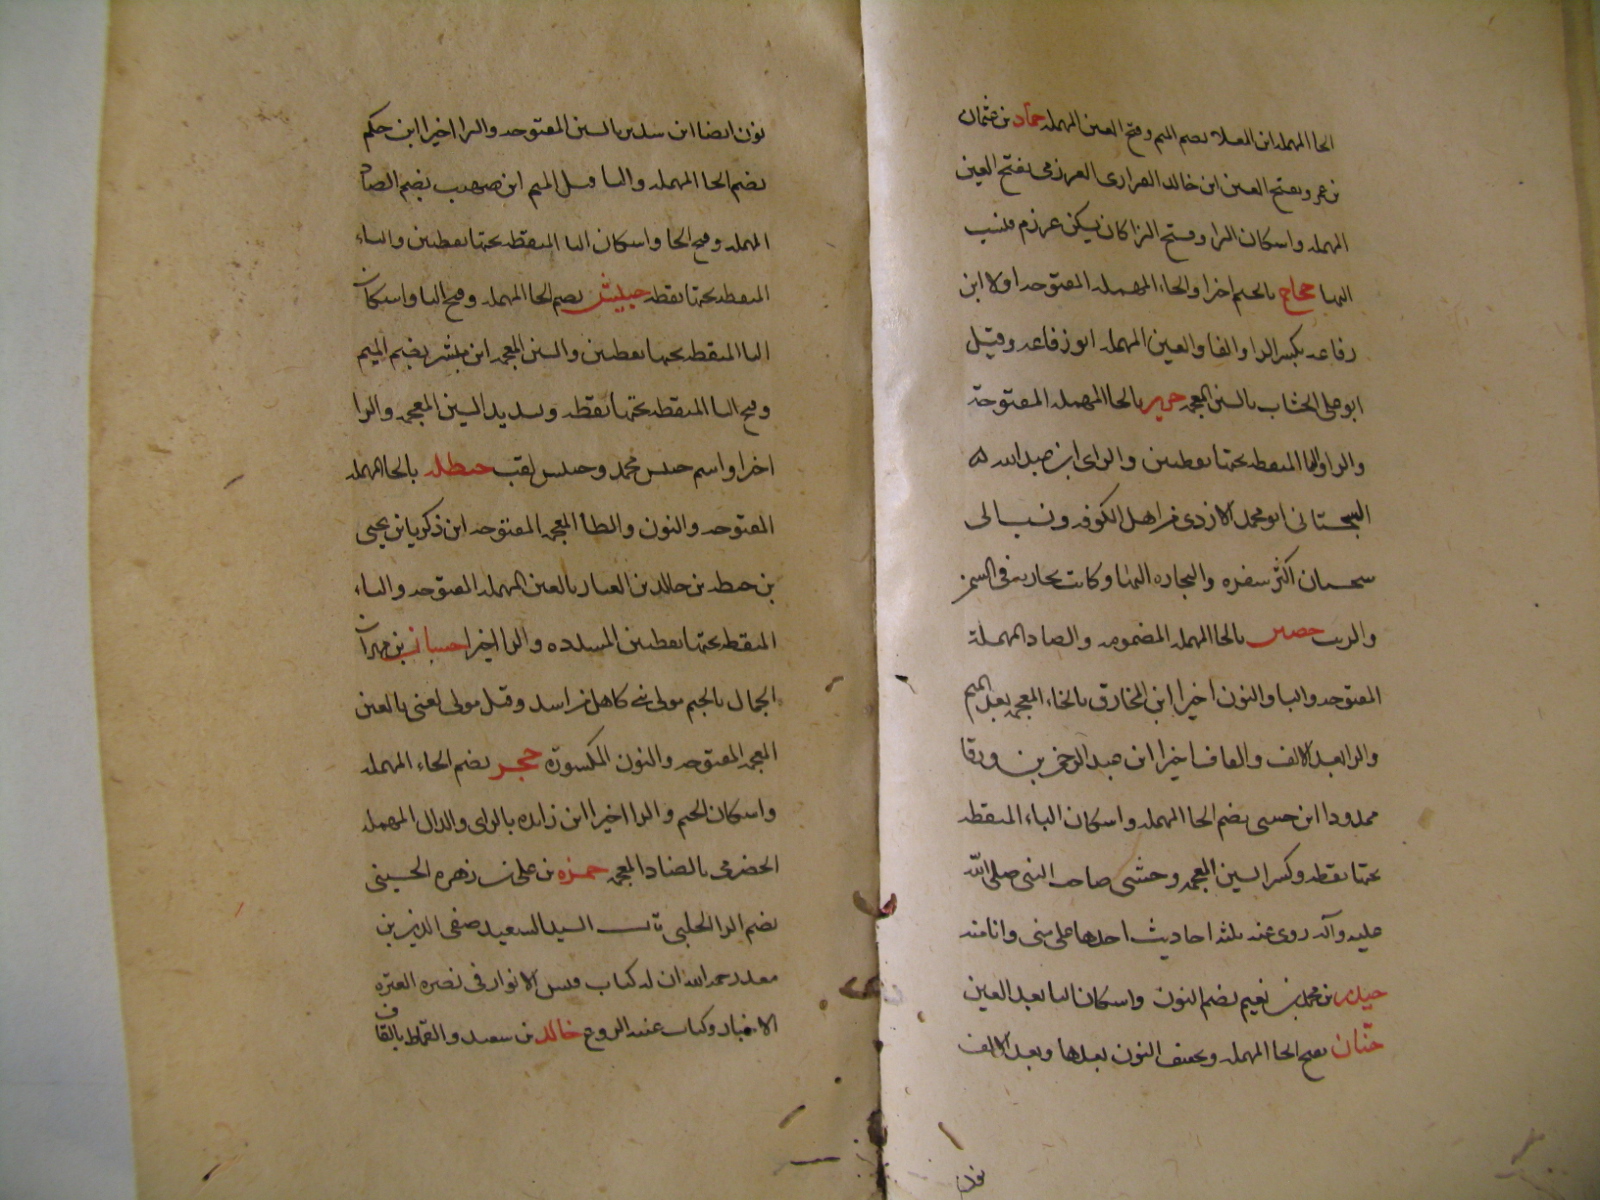 الحا المهمله ابن المعلا بضم الميم وفتح العين المهمله حماد بن عثمان
بن عمرو بفتح العين ابن خالد الفزارى العرزمى بفتح العين
المهمله واسكان الرا وفتح الزا كان يسكن عرزم فنسب
اليها حجاج بالجيم اخرا والحاء المهمله المفتوحه اولا ابن
رفاعه بكسر الرا والفا والعين المهمله ابو رفاعه وقيل
ابو على الخشاب بالشين المعجمه حريز بالحا المهمله المفتوحة
والرا واليا المنقطه تحتها نقطتين والزاى ابن عبد الله
السجستانى ابو محمد الازدى من اهل الكوفه ونسب الى
سجستان اكثر سفره والتجاره اليها وكانت تجارته فى السمن
والزيت حصين بالحا المهمله المضمومه والصاد المهملة
المفتوحه واليا والنون اخيرا ابن المخارق بالخاء المعجمه بعد الميم
والرا بعد الالف والقاف اخيرا ابن عبد الرحمن بن ورقا
ممدودا ابن حبشى بضم الحا المهمله واسكان الباء المنقطه
تحتها نقطه وكسر الشين المعجمه وحبشى صاحب النبى صلى الله
عليه وآله روى عنه ثلثه احاديث احدها على منى وانا منه
حيدر بن محمد بن نعيم بضم النون واسكان اليا بعد العين
حنان بفتح الحا المهمله وتخفيف النون بعدها وبعد الالف
نون
نون ايضا ابن سدير بالسين المفتوحه والرا اخيرا ابن حكم
بضم الحا المهمله واليا قبل الميم ابن صهيب بضم الصاد
المهمله وفتح الها واسكان اليا المنقطه تحتها نقطتين والباء
المنقطه تحتها نقطه حبيش بضم الحا المهمله وفتح البا واسكان
اليا المنقطه تحتها نقطتين والشين المعجمه ابن مبشر بضم الميم
وفتح البا المنقطه تحتها نقطه وتشديد الشين المعجمه والرا
اخرا واسم حبيش محمد وحبيش لقب حنظله بالحا المهمله
المفتوحه والنون والظا المعجمه المفتوحه ابن زكريا بن يحيى
بن حنظله بن خالد بن العيار بالعين المهمله المفتوحه والياء
المنقطه تحتها نقطتين المشدده والرا اخيرا حسان بن مهران
الجمال بالجيم مولى بنى كاهل من اسد وقيل مولى لغنى بالغين
المعجمه المفتوحه والنون المكسورة حجر بضم الحاء المهمله
واسكان الجيم والرا اخيرا ابن زايده بالزاى والدال المهمله
الحضرمى بالضاد المعجمه حمزه بن على بن زهره الحسينى
بضم الزا الحلبى قال السيد السعيد صفى الدين بن
معد رحمه الله ان له كتاب قبس الانوار فى نصره العتره
الاخيار وكتاب غنيه النزوع خالد بن سعيد والقماط بالقاف